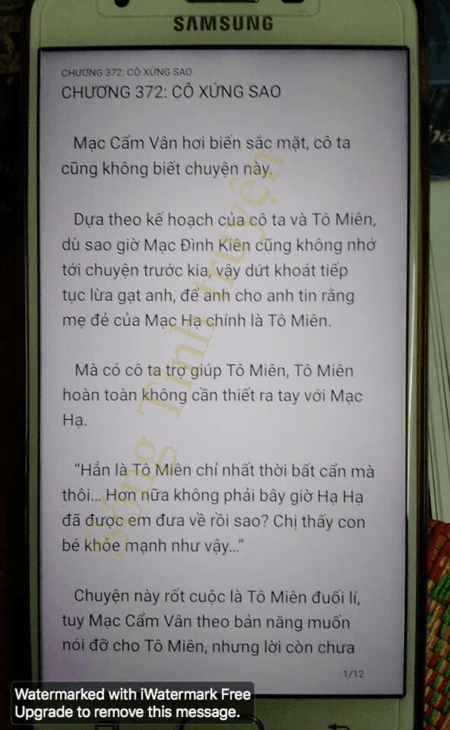 SAMSUNG
CHƯƠNG 372: CÔ XỨNG SAO
CHƯƠNG 372: CÔ XỨNG SAO
Mạc Cẩm Vân hơi biến sắc mặt, cô ta
cũng không biết chuyện này.
Dựa theo kế hoạch của cô ta và Tô Miên,
dù sao giờ Mạc Đình Kiên cũng không nhớ
tới chuyện trước kia, vậy dứt khoát tiếp
tục lừa gạt anh, để anh cho anh tin rằng
mẹ đẻ của Mạc Hạ chính là Tô Miên.
Mà có cô ta trợ giúp Tô Miên, Tô Miên
hoàn toàn không cần thiết ra tay với Mạc
Hạ.
"Hẳn là Tô Miên chỉ nhất thời bất cẩn mà
thôi... Hơn nữa không phải bây giờ Hạ Hạ
đã được em đưa về rồi sao? Chị thấy con
bé khỏe mạnh như vậy..."
Chuyện này rốt cuộc là Tô Miên đuối lí,
tuy Mạc Cẩm Vân theo bản năng muốn
nói đỡ cho Tô Miên, nhưng lời còn chưa
1/12
Sóng Tình truyện
Watermarked with iWatermark Free
Upgrade to remove this message.